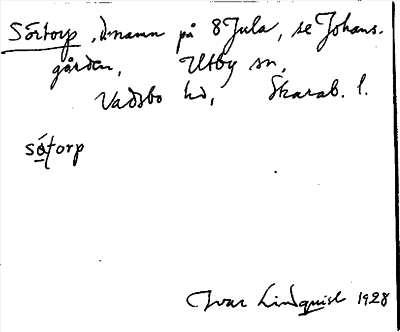 Sörtorp, dnamn på 8 Jula, se Johans-
gården, Utby sn,
Vadsbo hd, Skarab. l.
sótorp
Ivar Lindquist 1928